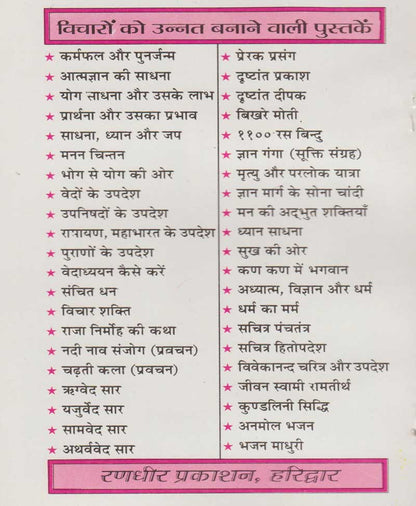 विचारों को उन्नत बनाने वाली पुस्तकें
★ कर्मफल और पुनर्जन्म
★ आत्मज्ञान की साधना
★ योग साधना और उसके लाभ
★ प्रार्थना और उसका प्रभाव
★ साधना, ध्यान और जप
★ मनन चिन्तन
★ भोग से योग की ओर
★ वेदों के उपदेश
★ उपनिषदों के उपदेश
★ रामायण, महाभारत के उपदेश
★ पुराणों के उपदेश
★ वेदाध्ययन कैसे करें
★ संचित धन
★ विचार शक्ति
★ राजा निर्मोह की कथा
★ नदी नाव संजोग (प्रवचन)
★ चढ़ती कला (प्रवचन)
★ ऋग्वेद सार
★ यजुर्वेद सार
★ सामवेद सार
★ अथर्ववेद सार
★ प्रेरक प्रसंग
★ दृष्टांत प्रकाश
★ दृष्टांत दीपक
★ बिखरे मोती
★ ११०० रस बिन्दु
★ ज्ञान गंगा (सूक्ति संग्रह)
★ मृत्यु और परलोक यात्रा
★ ज्ञान मार्ग के सोना चांदी
★ मन की अद्भुत शक्तियाँ
★ ध्यान साधना
★ सुख की ओर
★ कण कण में भगवान
★ अध्यात्म, विज्ञान और धर्म
★ धर्म का मर्म
★ सचित्र पंचतंत्र
★ सचित्र हितोपदेश
★ विवेकानन्द चरित्र और उपदेश
★ जीवन स्वामी रामतीर्थ
★ कुण्डलिनी सिद्धि
★ अनमोल भजन
★ भजन माधुरी
रणधीर प्रकाशन, हरिद्वार